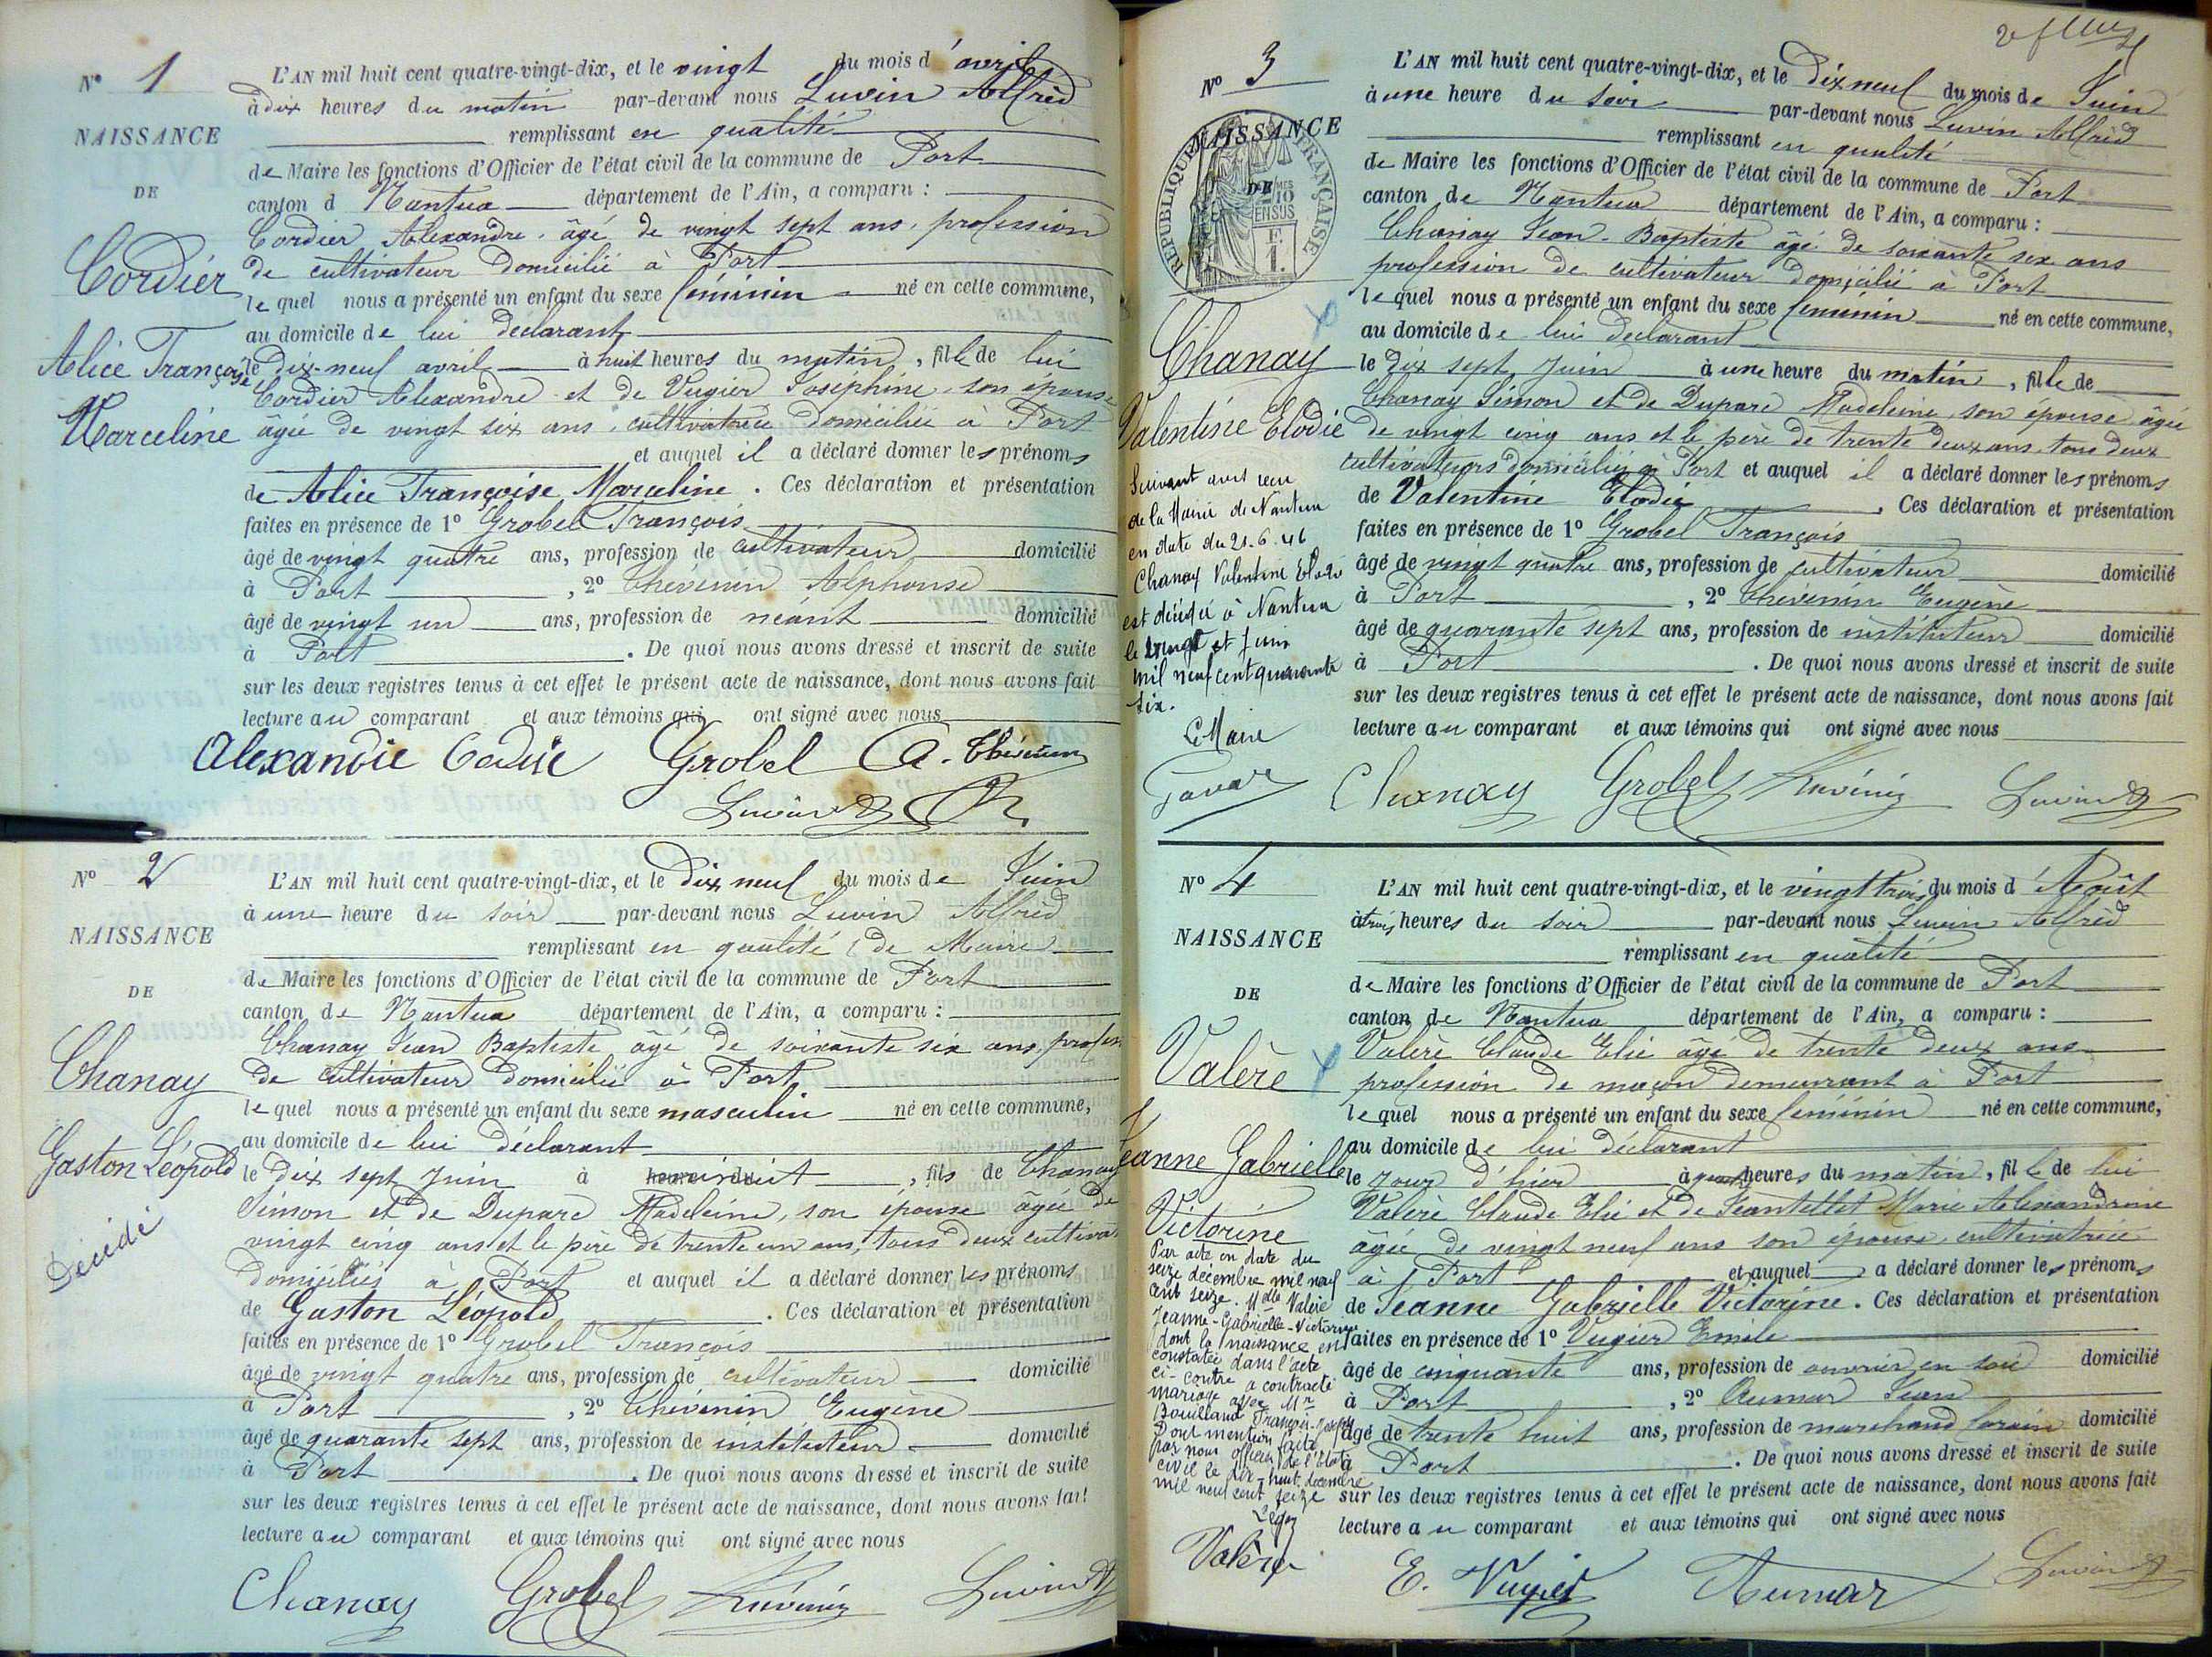 N° 1
NAISSANCE
DE
Cordier
Alice Françoise
Marceline
L'AN mil huit cent quatre-vingt-dix, et le vingt du mois d'avril
à dix heures du matin par-devant nous Luvin Alfred
remplissant en qualité
de Maire les fonctions d'Officier de l'état civil de la commune de Port
canton d Nantua département de l'Ain, a comparu :
Cordier Alexandre, âgé de vingt sept ans, profession
de cultivateur domicilié à Port
le quel nous a présenté un enfant du sexe féminin né en cette commune,
au domicile de lui déclarant
le dix-neuf avril à huit heures du matin, fille de lui
Cordier Alexandre et de Vugier Josephine, son épouse
âgée de vingt six ans, cultivatrice domiciliée à Port
et auquel il a déclaré donner les prénoms
de Alice Françoise Marceline. Ces déclaration et présentation
faites en présence de 1° Grobel François
âgé de vingt quatre ans, profession de cultivateur domicilié
à Port, 2° Thévenin Alphonse
âgé de vingt un ans, profession de néant domicilié
à Port. De quoi nous avons dressé et inscrit de suite
sur les deux registres tenus à cet effet le présent acte de naissance, dont nous avons fait
lecture au comparant et aux témoins qui ont signé avec nous
Alexandre Cordier Grobel A. Thévenin
Luvin
N° 2
NAISSANCE
DE
Chanay
Gaston Léopold
Décédé
L'AN mil huit cent quatre-vingt-dix, et le dix neuf du mois de Juin
à une heure du soir par-devant nous Luvin Alfred
remplissant en qualité de Maire
de Maire les fonctions d'Officier de l'état civil de la commune de Port
canton de Nantua département de l'Ain, a comparu :
Chanay Jean Baptiste âgé de soixante six ans, profession
de cultivateur domicilié à Port
le quel nous a présenté un enfant du sexe masculin né en cette commune,
au domicile de lui déclarant
le dix sept Juin à minuit, fils de Chanay
Simon et de Duparc Madeleine, son épouse âgée de
vingt cinq ans et le père de trente un ans, tous deux cultivat
domiciliés à Port et auquel il a déclaré donner les prénoms
de Gaston Léopold. Ces déclaration et présentation
faites en présence de 1° Grobel François
âgé de vingt quatre ans, profession de cultivateur domicilié
à Port, 2° Thévenin Eugène
âgé de quarante sept ans, profession de instituteur domicilié
à Port. De quoi nous avons dressé et inscrit de suite
sur les deux registres tenus à cet effet le présent acte de naissance, dont nous avons fait
lecture au comparant et aux témoins qui ont signé avec nous
Chanay Grobel Thévenin Luvin
N° 3
NAISSANCE
DE
RÉPUBLIQUE FRANÇAISE
Chanay
Valentine Elodie
Suivant avis reçu
de la Mairie de Nantua
en date du 21.6.46
Chanay Valentine Elodie
est décédée à Nantua
le vingt et Juin
mil neuf cent quarante
six.
Le Maire
L'AN mil huit cent quatre-vingt-dix, et le dix neuf du mois de Juin
à une heure du soir par-devant nous Luvin Alfred
remplissant en qualité
de Maire les fonctions d'Officier de l'état civil de la commune de Port
canton de Nantua département de l'Ain, a comparu :
Chanay Jean-Baptiste âgé de soixante six ans
profession de cultivateur domicilié à Port
le quel nous a présenté un enfant du sexe féminin né en cette commune,
au domicile de lui déclarant
le dix sept Juin à une heure du matin, fille de
Chanay Simon et de Duparc Madeleine, son épouse âgée
de vingt cinq ans et le père de trente deux ans, tous deux
cultivateurs domiciliés à Port et auquel il a déclaré donner les prénoms
de Valentine Elodie. Ces déclaration et présentation
faites en présence de 1° Grobel François
âgé de vingt quatre ans, profession de cultivateur domicilié
à Port, 2° Thévenin Eugène
âgé de quarante sept ans, profession de instituteur domicilié
à Port. De quoi nous avons dressé et inscrit de suite
sur les deux registres tenus à cet effet le présent acte de naissance, dont nous avons fait
lecture au comparant et aux témoins qui ont signé avec nous
Chanay Grobel Thévenin Luvin
N° 4
NAISSANCE
DE
Valère
Jeanne Gabrielle
Victorine
Par acte en date du
seize décembre mil neuf
cent seize. Melle Valère
Jeanne-Gabrielle-Victorine
dont la naissance est
constatée dans l'acte
ci-contre a contracté
mariage avec Mr
Bouilland François-Joseph
Dont mention faite
par nous officier de l'état
civil le dix-huit décembre
mil neuf cent seize
L'AN mil huit cent quatre-vingt-dix, et le vingt trois du mois d'Août
à trois heures du soir par-devant nous Luvin Alfred
remplissant en qualité
de Maire les fonctions d'Officier de l'état civil de la commune de Port
canton de Nantua département de l'Ain, a comparu :
Valère Claude Elie âgé de trente deux ans
profession de maçon demeurant à Port
le quel nous a présenté un enfant du sexe féminin né en cette commune,
au domicile de lui déclarant
le jour d'hier à quatre heures du matin, fille de lui
Valère Claude Elie et de Jeantellet Marie Alexandrine
âgée de vingt neuf ans son épouse, cultivatrice
à Port et auquel a déclaré donner les prénoms
de Jeanne Gabrielle Victorine. Ces déclaration et présentation
faites en présence de 1° Vugier Emile
âgé de cinquante ans, profession de ouvrier en soie domicilié
à Port, 2° Aumar Jean
âgé de trente huit ans, profession de marchand forain domicilié
à Port. De quoi nous avons dressé et inscrit de suite
sur les deux registres tenus à cet effet le présent acte de naissance, dont nous avons fait
lecture au comparant et aux témoins qui ont signé avec nous
Valère E. Vugier Aumar Luvin